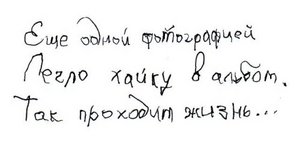 Еще одной фотографией
Легло хайку в альбом.
Так проходит жизнь...